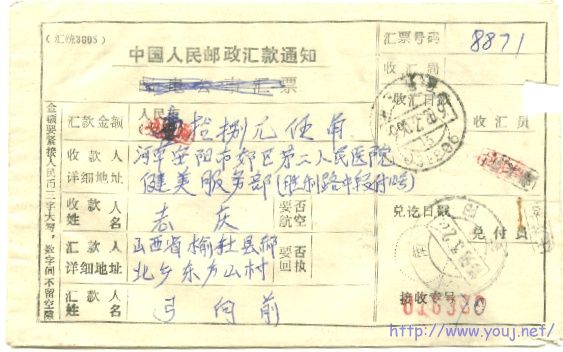 （汇统3803）
中国人民邮政汇款通知
汇票
汇票号码
8871
收汇局
收汇日戳
收汇员
金额要紧接人民币三字大写，数字间不留空隙
汇款金额
人民币
拾捌元
收款人
详细地址
河南安阳市郊区第二人民医院
健美服务部（胜利路中段
收款人
姓名
志庆
要否
航空
汇款人
详细地址
山西省榆社县郝
北乡东方山村
要否
回执
汇款人
姓名
弓向前
兑讫日戳
兑付员
接收专号
http://www.youj.net/